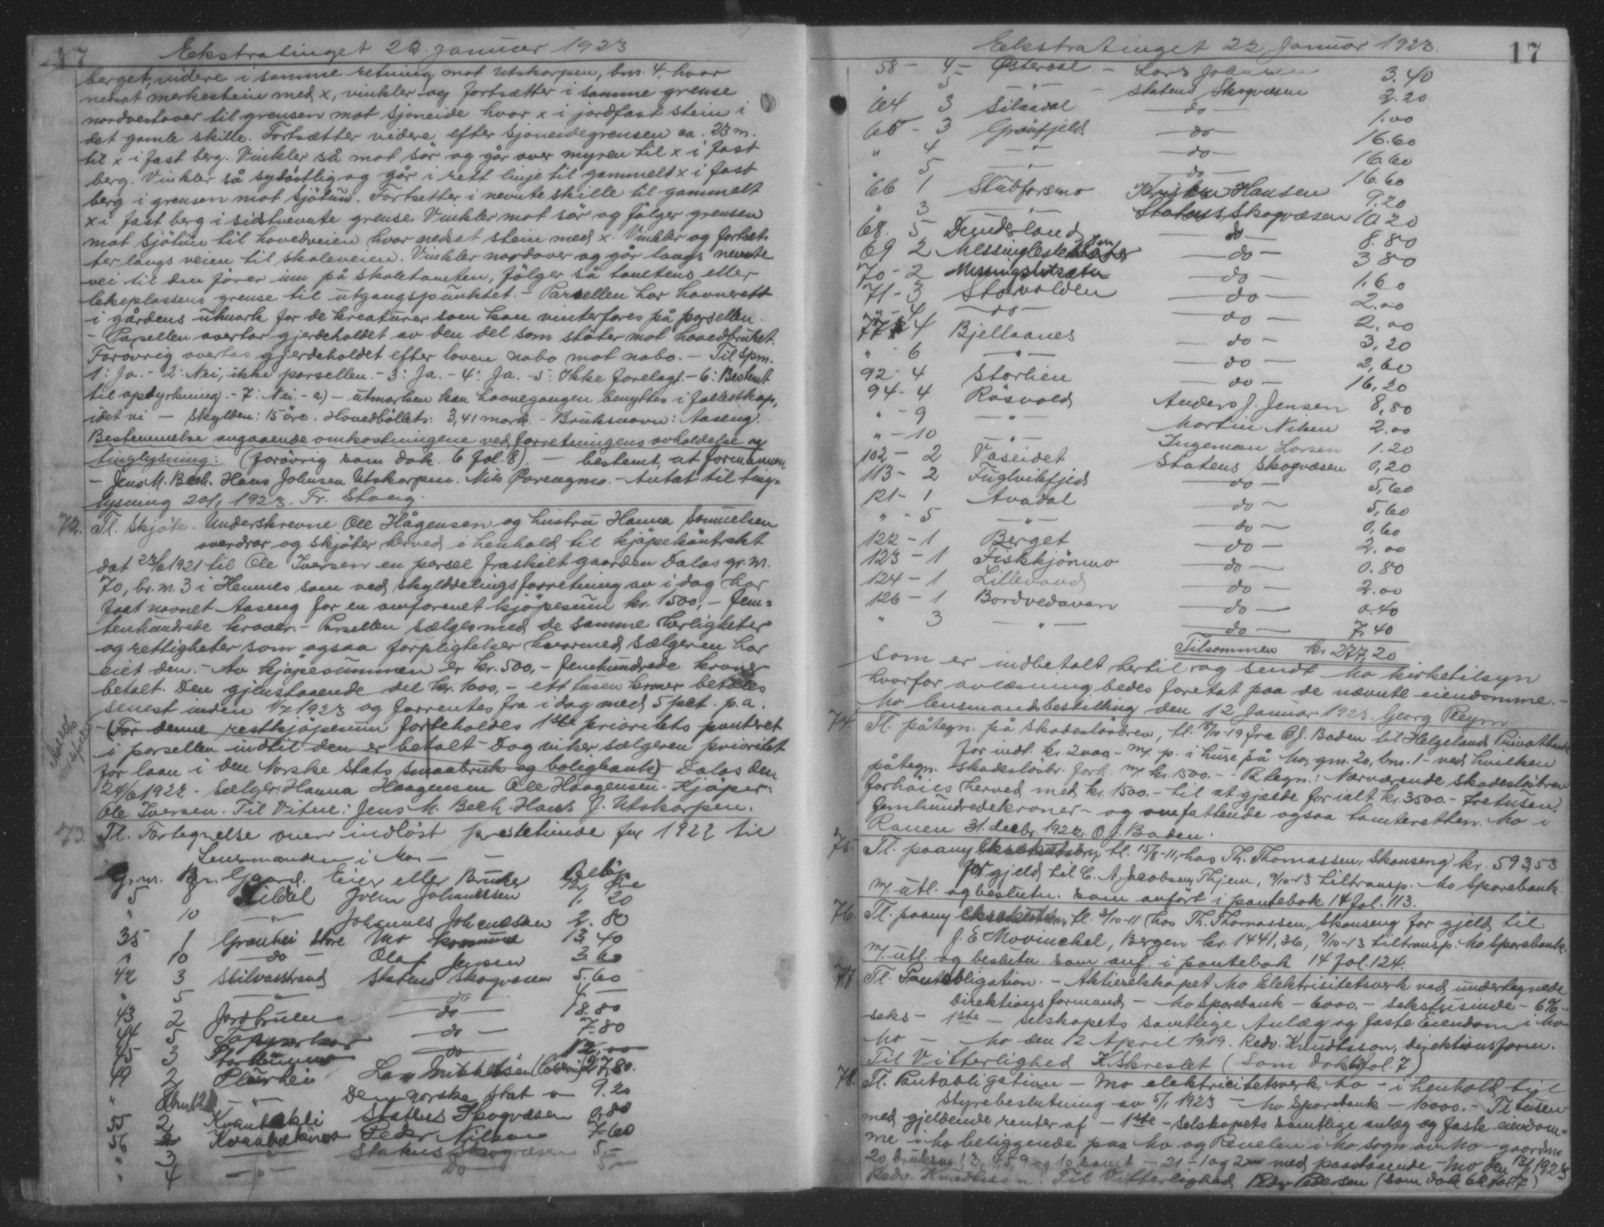 17
Ekstratinget 22. januar 1923
berget, videre i samme retning mot Utskarpen, bm. 4, hvor
nedsat merkestein med x, vinkler og fortsætter i samme grense
nordvestover til grensen mot Sjoneide hvor x i jordfast stein i
det gamle skille. Fortsætter videre efter Sjoneidegrensen ca. 23 m.
til x i fast berg. Vinkler så mot sør og går over myren til x i fast
berg. Vinkler så sydøstlig og går i rett linje til gammelt x i fast
berg i grensen mot Sjötun. Fortsetter i nevnte skille til gammelt
x i fast berg i sidstnevnte grense. Vinkler mot sør og følger grensen
mot Sjötun til hovedveien hvor nedsat stein med x. Vinkler og fortset-
ter langs veien til skoleveien. Vinkler nordover og går langs nevnte
vei til den fører inn på skoletomten, følger så tomtens eller
lekeplassens grense til utgangspunktet. - Parsellen har havnerett
i gårdens utmark for de kreaturer som kan vinterfores på parsellen.
- Parsellen overtar gjerdeholdet av den del som støter mot hovedbruket.
Forøvrig overtas gjerdeholdet efter loven nabo mot nabo. - Til spm.
1: Ja. - 2: Nei, ikke parsellen - 3: Ja. - 4: Ja. - 5: Ikke forelagt - 6: Bestemt
til opdyrkning - 7: Nei - a) - utmarken kan havnegangen benyttes i fællesskap,
idet vi - Skylden: 15 øre. Hovedbölets: 3,41 mark - Bruksnavn: Aaseng.
Bestemmelse angaaende omkostningene ved forretningens avholdelse og
tinglysning: (forøvrig som dok. 6 fol. 8) - bestemt, at formannen
- Jens M. Bech. Hans Johnsen Utskarpen. Nils - Antat til ting-
lysning 20/1 1923. Fr. Stang.
72. Tl. Skjöte. Underskrevne Ole Hågensen og hustru Hanna Samuelsen
overdrar og skjöter herved i henhold til kjöpekontrakt
dat 23/6 1921 til Ole Iversen en parsel fraskilt gaarden Dalas gr. nr.
70, br. nr. 3 i Hemnes som ved skylddelingsforretning av i dag har
faat navnet Aaseng for en omforenet kjöpesum kr. 1500,- fem-
tenhundrede kroner - Parsellen sælges med de samme herligheter
og rettigheter som ogsaa forpligtelser hvormed sælgeren har
eiet den. - Av kjöpesummen er kr. 500,- femhundrede kroner
betalt. Den gjenstaaende del kr. 1000,- ett tusen kroner betales
senest inden 1/7 1923 og forrentes fra i dag med 5 pct. p.a.
(For denne restkjöpesum forbeholdes 1ste prioritets panteret
i parsellen indtil den er betalt - Dog viker sælgeren prioritet
for laan i den Norske Stats smaabruk og boligbank) Dalas den
24/6 1922. Sælger: Hanna Haagensen Ole Haagensen. Kjöper:
Ole Iversen. Til Vitne: Jens M. Bech Hans J. Utskarpen.
73. Tl. Fortegnelse over indløst prestetiende for 1922 til
Lensmanden i Mo. -
G. nr. Br. Gaard. Eier eller Bruker Beløp
5 8 Kildal Johan Johanssen 1. 20
" 10 -"- Johannes Johansen 2. 80
35 1 Grønhei store Mo kommune 13. 40
" 10 do - Olaf Jensen 3. 60
42 3 Stilvasstrand Statens Skogvæsen 5. 60
" 5 -"- do 4 -
43 2 Jordbruen - do - 18. 80
44 5 - do - 7. 80
45 3 do - 12,00
49 2 Plurhei Lars Mikkelsen 27,80.
" -"- Den norske Stat - 9. 20
55 2 Statens Skogvæsen 0,80
56 2 Peder Nilsen 7. 60
" 3 Statens Skogvæsen 5 -
" 4 -"- do 5 -
Ekstratinget 22 Januar 1923.
17
58 - 4 - Østerdal - Lars Johansen 3. 40
" 5 -"- Statens Skogvæsen 2. 20
64 3 Silaadal - do - 1. 00
65 - 3 Grønfjeld - do - 16. 60
" 4 -"- - do - 16. 60
" 5 -"- - do - 16. 60
66 1 Stubforsmo Hansen 9. 20
" 3 -"- Statens Skogvæsen 10. 20
68. 5 Dunderland - do - 8. 80
69 2 - do - 3 80
70 - 2 - do - 1. 60
71 - 3 Storvolden - do - 2. 00
" - 4 - do - - do - 2. 00
77 4 Bjellaanes - do - 3. 20
" 6 -"- - do - 2, 60
92 - 4 Storlien - do - 16, 20
94 - 4 Røsvold Anders J. Jensen 8, 80
" - 9 -"- Martin Nilsen 2. 00
" - 10 -"- Ingeman Larsen 1. 20
102 - 2 Paseidet Statens Skogvæsen 0,20
113 - 2 Fuglvikfjeld - do - 5, 60
121 - 1 Avadal - do - 5, 60
" - 5 -"- - do - 0. 60
122 - 1 Berget - do - 2. 00
123 - 1 Fiskkjönmo - do - 0. 80
124 - 1 Lillevand - do - 2. 00
126 - 1 Bordvedaven - do - 0. 40
" 3 -"- - do - 7. 40
Tilsommen kr. 277,20
som er indbetalt hertil og sendt Mo kirketilsyn
hvorfor avlæsning bedes foretat paa de nævnte eiendomme. -
Mo lensmandsbestilling den 12 Januar 1923. Georg Pleym
74. Tl. påtegn. på skadesløsbrev, tl. -19 fra O. J. Baden til Helgelands Privatbank
for indt. kr. 2000 - m/ p. i huse på Mo, gnr. 20, bnr. 1 - ved hvilken
påtegn. skadesløsbr. forh. m/ kr. 1500. - Påtegn.: Nærværende skadesløsbrev
forhøies herved med kr. 1500. - til at gjælde for ialt kr. 3500. - tretusen
femhundredekroner - og omfattende ogsaa tomteretten. Mo i
Ranen 31. decbr. 1922. O. J. Baden.
75. Tl. paany Eksekution, tl. 15/8-11, hos Th. Thomassen, Skonseng kr. 593,53
for gjeld til C. A. Jacobsen, Thjem, 9/10-13 tiltransp. Mo Sparebank.
m/ utl. og beslutn. som anført i pantebok 14 fol. 113.
76. Tl. paany Eksekution, tl. 3/10-11 hos Th. Thomassen, Skonseng for gjeld til
J. E. Mowinckel, Bergen kr. 1441,26, 9/10-13 tiltransp. Mo Sparebank.
m/ utl. og beslutn. som anf. i pantebok 14 fol. 124.
77. Tl. Panteobligation. - Aktieselskapet Mo Elektrisitetsverk ved undertegnede
direktionsformand - Mo Sparebank - 6000. - sekstusinde - 6% -
seks - 1ste - selskapets samtlige Anlæg og faste Eiendom i Mo
Mo - Mo den 12 April 1919. Redv. Knudtsson, direktionsform.
Til Vitterlighed K. Skreslet (Som dok fol. 7)
78. Tl. Pantobligation - Mo elektricitetsverk, Mo - i henhold til
styrebeslutning av 5/1 1923 - Mo Sparebank - 10000. - Ti tusen
med gjeldende renter af - 1ste - selskapets samtlige anlæg og faste eiendom-
me i Mo beliggende paa Mo og Revelen i Mo sogn av Mo - gaarden
20 bruksnr. 13, og 10 samt - 21 - 1 og 2 - med paastaaende - Mo den 1923
Redv. Knudtsson. Til Vitterlighed Pedersen (som dok fol. 7)